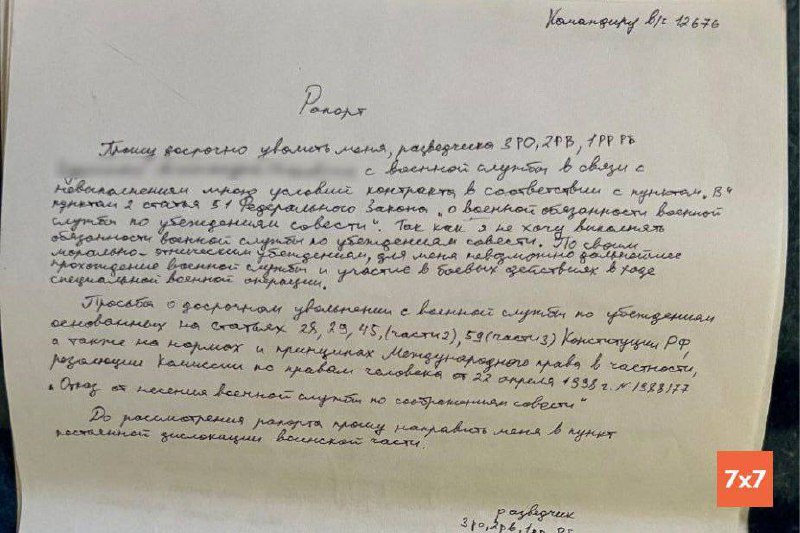 Командиру в/ч 12676
Рапорт
Прошу досрочно уволить меня, разведчика 3РО, 2РВ, 1РР РБ
с военной службы в связи с
невыполнением мною условий контракта в соответствии с пунктом "В"
пунктам 2 статья 51 Федерального Закона "о военной обязанности военной
службы по убеждениям совести". Так как я не хочу выполнять
обязанности военной службы по убеждениям совести. По своим
морально-этническим убеждениям, для меня невозможно дальнейшее
прохождение военной службы и участие в боевых действиях в ходе
специальной военной операции.
Просьба о досрочном увольнении с военной службы по убеждениям
основанных на статьях 28, 29, 45, (части 2), 59 (части 3) Конституции РФ,
а также на нормах и принципах Международного права в частности,
резолюции Комиссии по правам человека от 22 апреля 1998 г. № 1988/77
"Отказ от несения военной службы по соображениям совести"
До рассмотрения рапорта прошу направить меня в пункт
постоянной дислокации воинской части.
разведчик
3РО, 2РВ, 1РР РБ
7x7